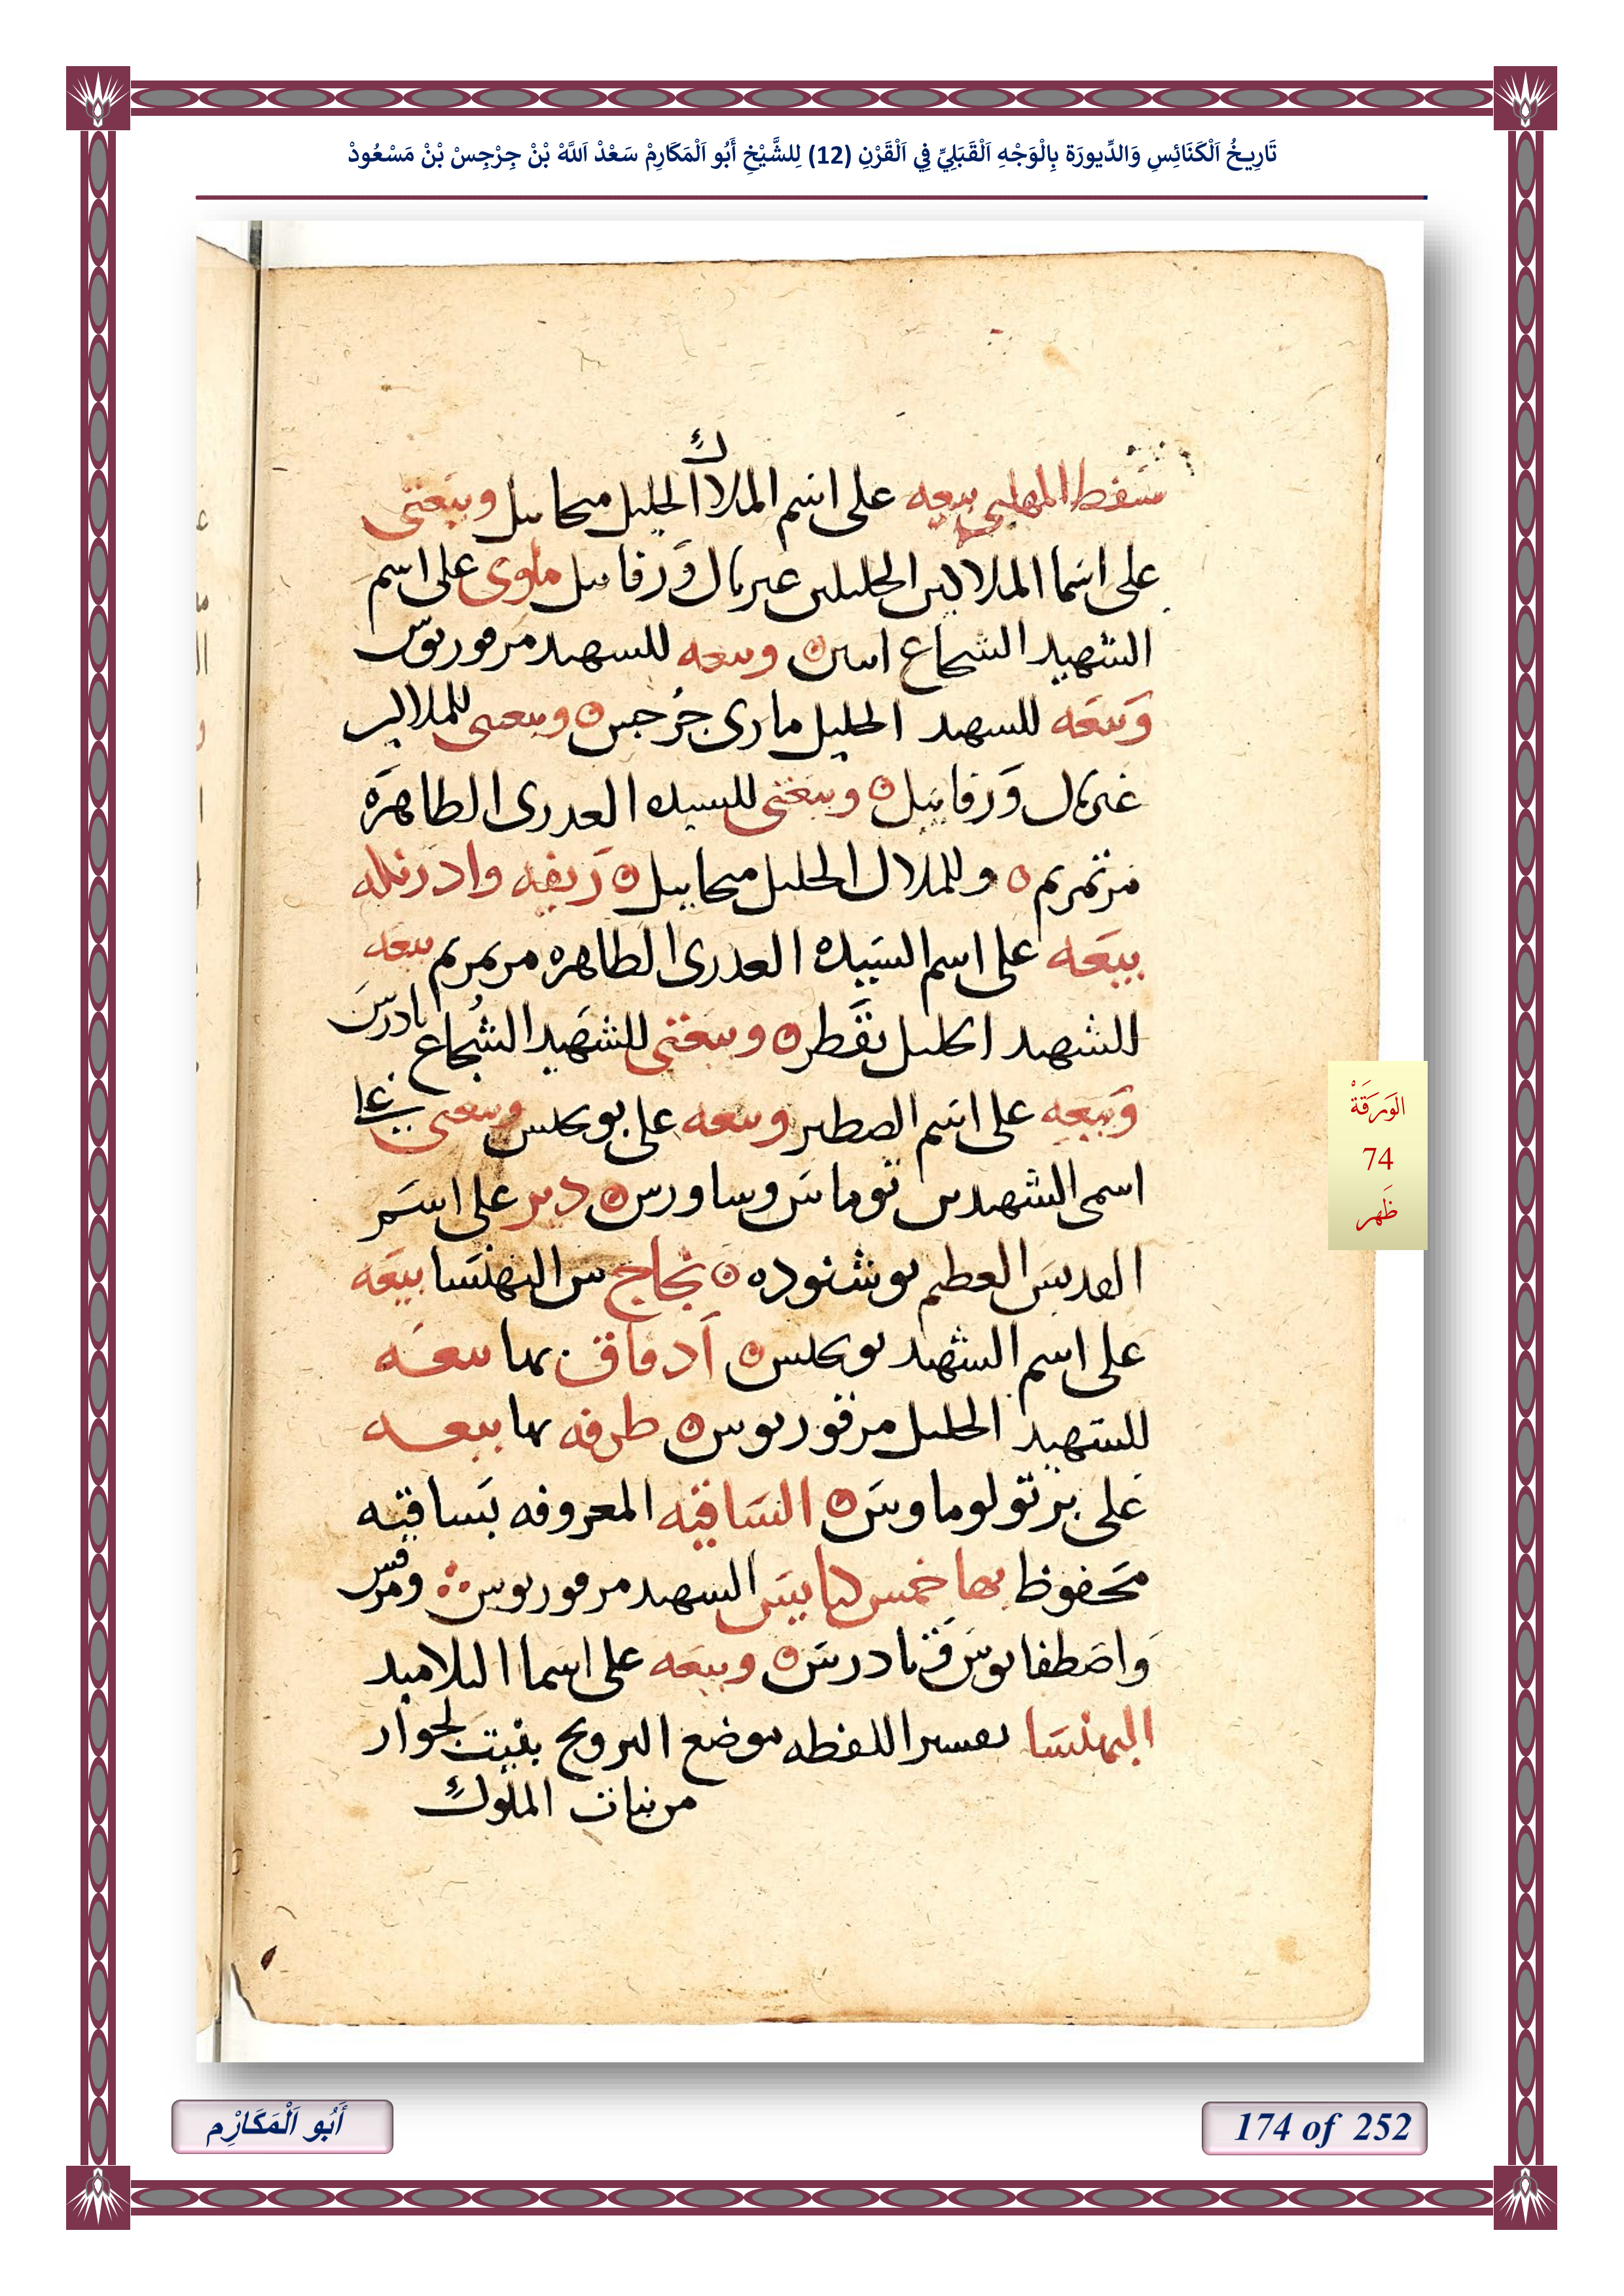 تَارِيخُ اَلْكَنَائِسِ وَالدِّيورَة بِالْوَجْهِ اَلْقَبَلِيِّ فِي اَلْقَرْنِ (12) لِلشَّيْخِ أَبُو اَلْمَكَارِمْ سَعْدْ اَللَّهْ بْنْ جِرْجِسْ بْنْ مَسْعُودْ
سفط المهلبى بيعه على اسم الملاك الجليل ميخاييل وبيعتى
على اسما الملاكين الجليلين غبريال ورفاييل ملوى على اسم
الشهيد الشجاع وبيعه للشهيد مرقوريوس
وبيعه للشهيد الجليل مارى جرجس وبيعتى للملاكين
غبريال ورفاييل وبيعتى للسيده العدرى الطاهره
مرتمريم وللملاك الجليل ميخاييل ريفه وادرنكه
بيعه على اسم السيده العدرى الطاهره مرتمريم بيعه
للشهيد اكليل بقطر وبيعتى للشهيد الشجاع تادرس
وبيعه على اسم وبيعه على بوكلس وبيعتى على
اسمى الشهيدين توماس وساورس دير على اسم
القديس العظيم بوشنوده من البهنسا بيعه
على اسم الشهيد بوكلس ادقاق بها بيعه
للشهيد الجليل مرقوريوس طرفه بها بيعه
على برتولوماوس الساقيه المعروفه بساقيه
محفوظ بها خمس كنايس الشهيد مرقوريوس ومرقس
واصطفانوس وتادرس وبيعه على اسما التلاميد
البهنسا تفسير اللفظه موضع التزويج بنيت لجوار
من بنات الملوك
الوَرَقَةْ
74
ظَهر
أَبُو اَلْمَكَارْم
174 of 252